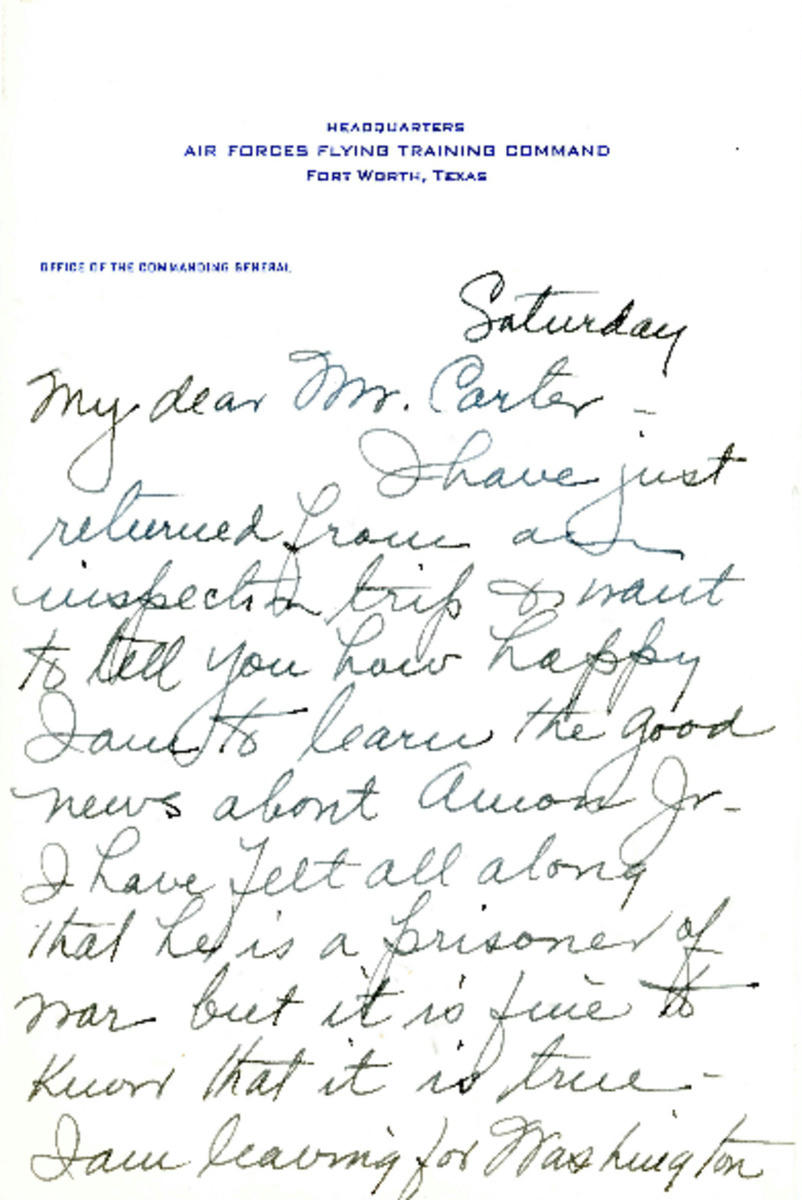 HEADQUARTERS
AIR FORCES FLYING TRAINING COMMAND
FORT WORTH, TEXAS
OFFICE OF THE COMMANDING GENERAL
Saturday
My dear Mr. Carter -
I have just
returned from an
inspection trip & want
to tell you how happy
I am to learn the good
news about Amon Jr -
I have felt all along
that he is a prisoner of
war but it is fine to
know that it is true -
I am leaving for Washington